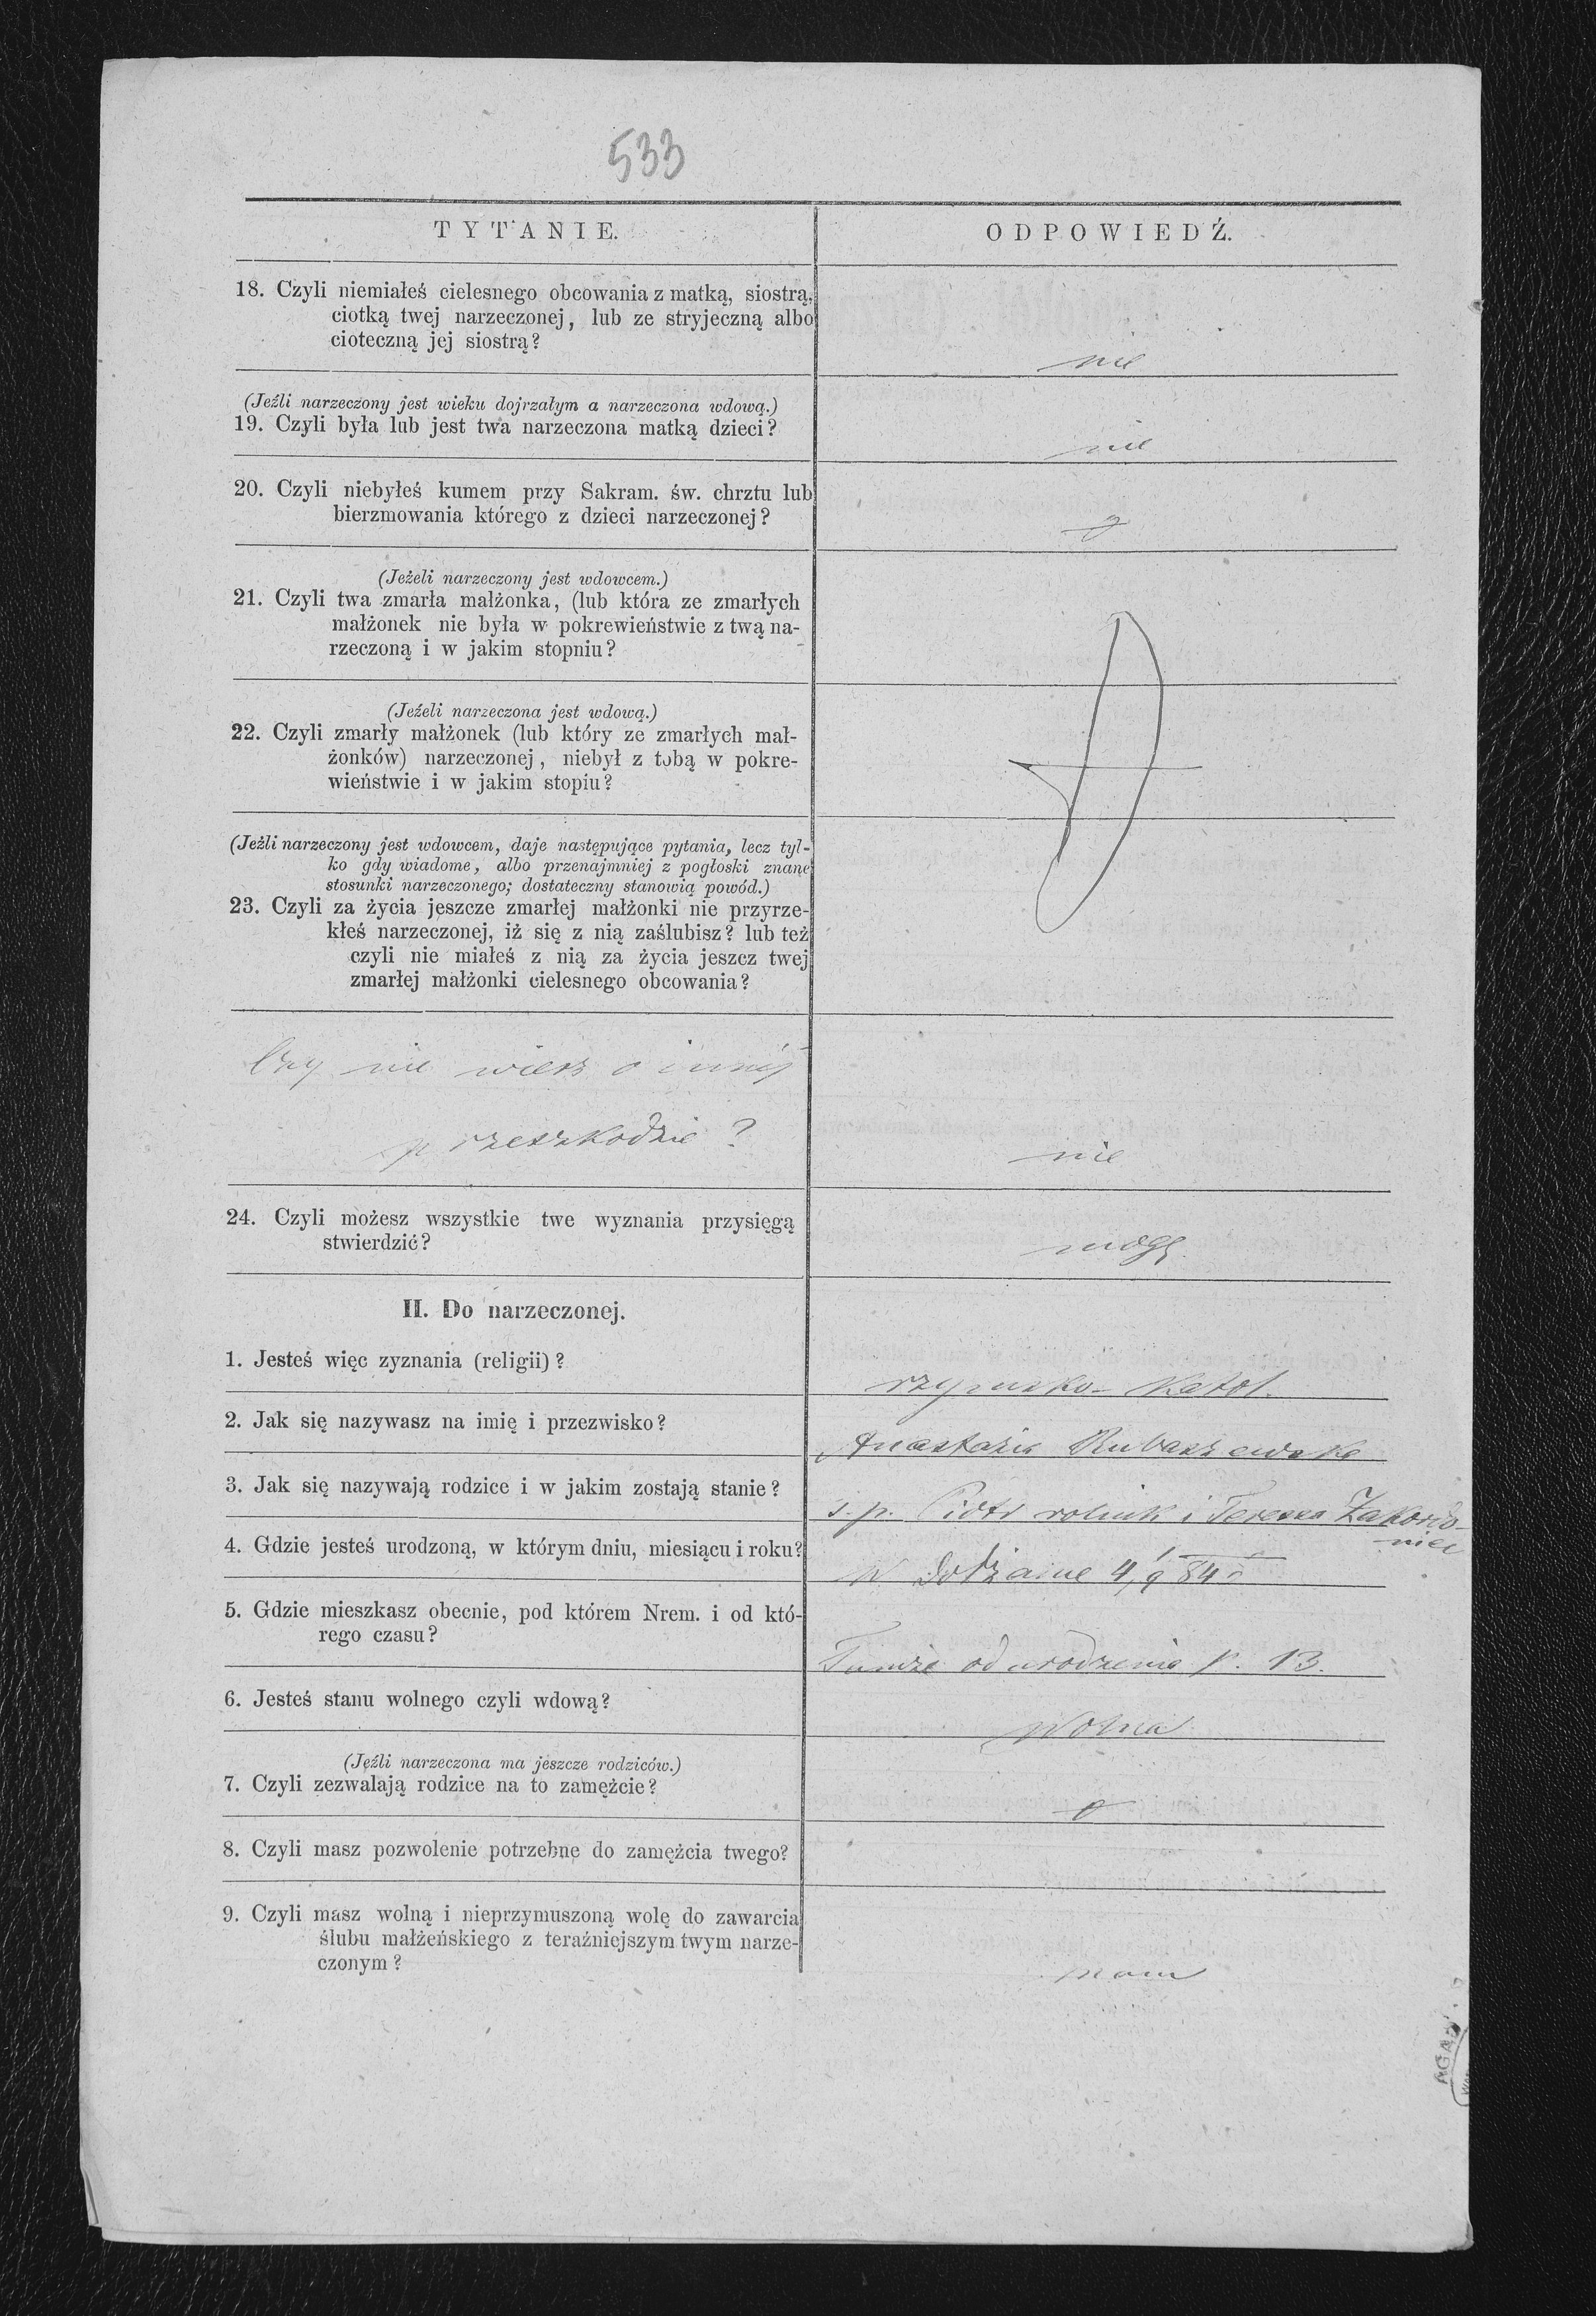 533
TYTANIE.
ODPOWIEDŹ.
18. Czyli niemiałeś cielesnego obcowania z matką, siostrą,
ciotką twej narzeczonej, lub ze stryjeczną albo
cioteczną jej siostrą?
nie
(Jeźli narzeczony jest wieku dojrzałym a narzeczona wdową.)
19. Czyli była lub jest twa narzeczona matką dzieci?
nie
20. Czyli niebyłeś kumem przy Sakram. św. chrztu lub
bierzmowania którego z dzieci narzeczonej?
(Jeżeli narzeczony jest wdowcem.)
21. Czyli twa zmarła małżonka, (lub która ze zmarłych
małżonek nie była w pokrewieństwie z twą na-
rzeczoną i w jakim stopniu?
(Jeźeli narzeczona jest wdową.)
22. Czyli zmarły małżonek (lub który ze zmarłych mał-
żonków) narzeczonej, niebył z tobą w pokre-
wieństwie i w jakim stopiu?
(Jeźli narzeczony jest wdowcem, daje następujące pytania, lecz tyl-
ko gdy wiadome, albo przenajmniej z pogłoski znane
stosunki narzeczonego; dostateczny stanowią powód.)
23. Czyli za życia jeszcze zmarłej małżonki nie przyrze-
kłeś narzeczonej, iż się z nią zaślubisz? lub też
czyli nie miałeś z nią za życia jeszcz twej
zmarłej małżonki cielesnego obcowania?
Czy nie wiesz o innej
przeszkodzie?
nie
24. Czyli możesz wszystkie twe wyznania przysięgą
stwierdzić?
mogę.
II. Do narzeczonej.
1. Jesteś więc zyznania (religii)?
rzymsko-katol.
2. Jak się nazywasz na imię i przezwisko?
Anastazia Rubaszewska
3. Jak się nazywają rodzice i w jakim zostają stanie?
s.p. Piotr rolnik i Teresa Zakordo-
niec
4. Gdzie jesteś urodzoną, w którym dniu, miesiącu i roku?
W
5. Gdzie mieszkasz obecnie, pod którem Nrem. i od któ-
rego czasu?
Tamże od urodzenia p. 13.
6. Jesteś stanu wolnego czyli wdową?
Wolna
(Jeźli narzeczona ma jeszcze rodziców.)
7. Czyli zezwalają rodzice na to zamężcie?
8. Czyli masz pozwolenie potrzebne do zamężcia twego?
9. Czyli masz wolną i nieprzymuszoną wolę do zawarcia
ślubu małżeńskiego z teraźniejszym twym narze-
czonym?
mam
AGAD